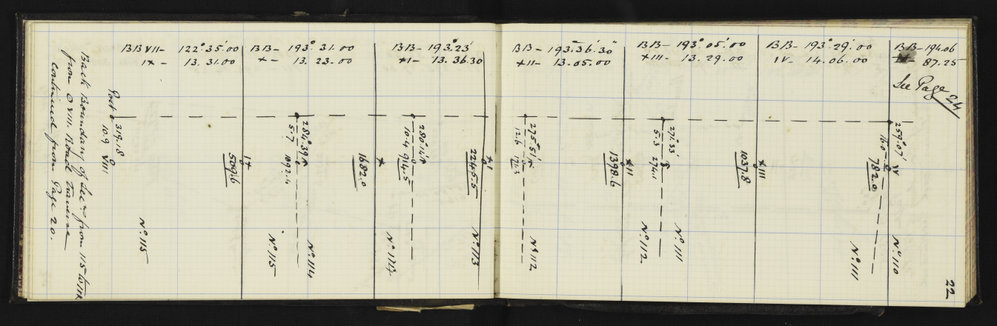 BB VII - 122° 35' 00
IX - 13. 31. 00
BB - 193° 31. 00
X - 13. 23. 00
BB - 193° 23'
XI - 13. 36. 30
BB - 193. 36' 30"
XII - 13. 05. 00
BB - 193° 05' 00
XIII - 13. 29. 00
BB - 193° 29' 00
IV - 14. 06. 00
BB - 194. 06
87. 25
See Page 24
Back Boundary of Secs from 115
from O VIII Road Traverse
continued from Page 20.
Post
319. 18
10. 9 VIII
IX
509.6
No 115
No 115
284° 39'
5. 7 1092. 4
No 114
X
1682. 0
280° 14'
10. 4 914. 5
XI
2245. 5
No 113
275° 51'
12. 6
No 112
XII
1398. 6
No 112
5. 3 274. 1
No 111
XIII
1037. 8
259° 07'
16. 0
IV
782. 0
No 111
No 110
22